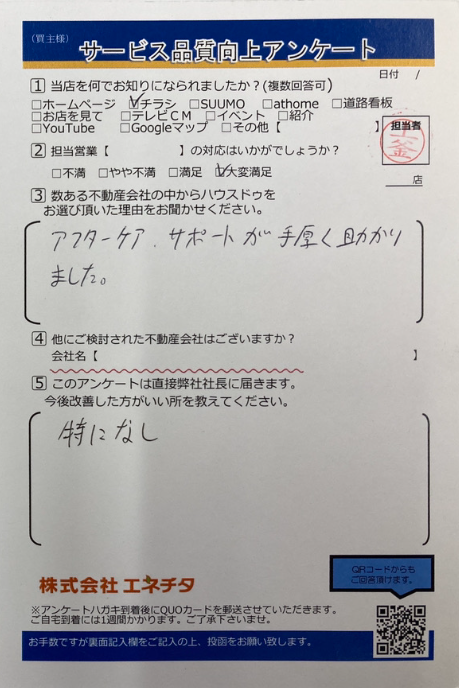 (買主様)
サービス品質向上アンケート
日付 /
1 当店を何でお知りになられましたか?(複数回答可)
□ホームページ ☑チラシ □SUUMO □athome □道路看板
□お店を見て □テレビCM □イベント □紹介
□YouTube □Googleマップ □その他【 】
担当者
2 担当営業【 】の対応はいかがでしょうか?
□不満 □やや不満 □満足 ☑大変満足
店
3 数ある不動産会社の中からハウスドゥを
お選び頂いた理由をお聞かせください。
アフターケア、サポートが手厚く助かり
ました。
4 他にご検討された不動産会社はございますか?
会社名【 】
5 このアンケートは直接弊社社長に届きます。
今後改善した方がいい所を教えてください。
特になし
QRコードからも
ご回答頂けます。
株式会社 エネチタ
※アンケートハガキ到着後にQUOカードを郵送させていただきます。
ご自宅到着には1週間かかります。ご了承下さいませ。
お手数ですが裏面記入欄をご記入の上、投函をお願い致します。